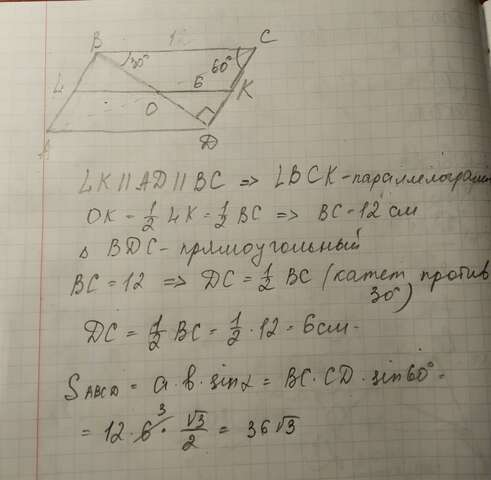 B 12 C
30° 60°
L 6 K
O
A D
LK || AD || BC => LBCK - параллелограмм
OK = 1/2 LK = 1/2 BC => BC = 12 см
Δ BDC - прямоугольный
BC = 12 => DC = 1/2 BC (катет против
30°)
DC = 1/2 BC = 1/2 · 12 = 6 см.
S ABCD = a · b · sin α = BC · CD · sin 60° =
= 12 · 6 3 · √3/2 = 36 √3